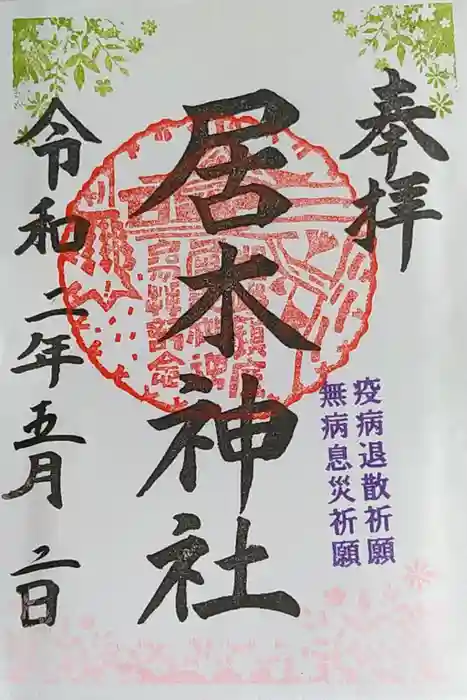 奉拝
疫病退散祈願
無病息災祈願
居木神社
令和二年五月二日